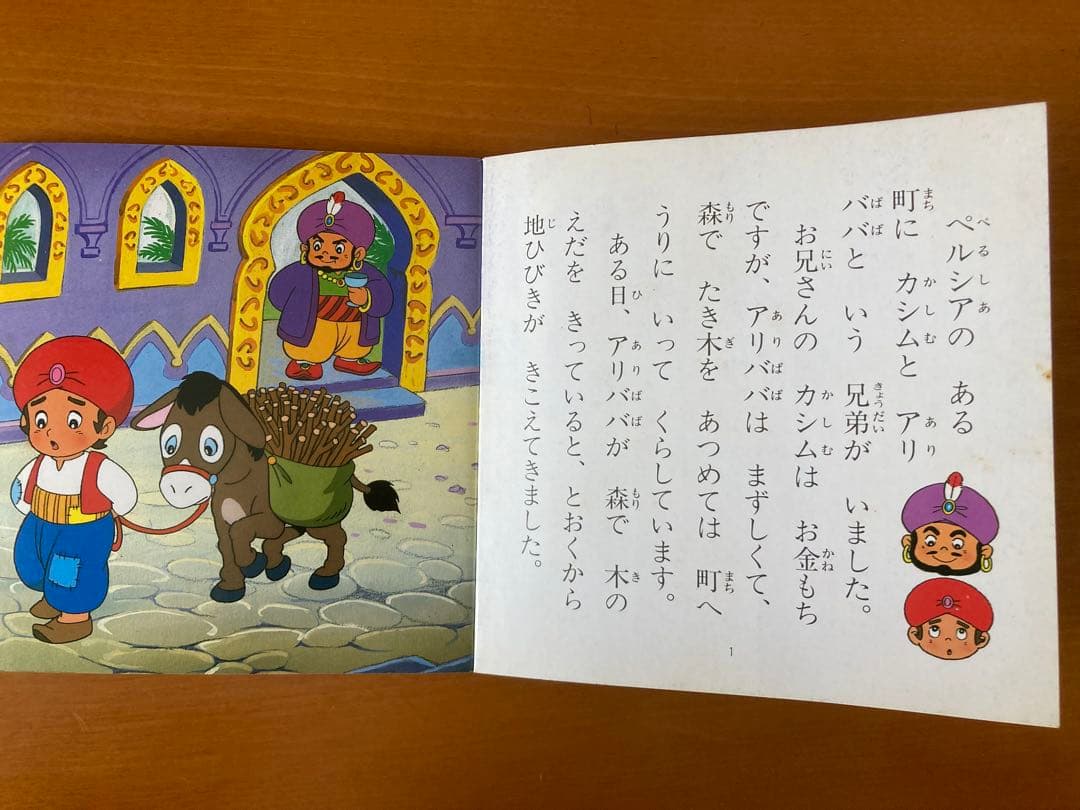 ペルシアの ある
町に カシムと アリ
ババと いう 兄弟が いました。
お兄さんの カシムは お金もち
ですが、アリババは まずしくて、
森で たき木を あつめては 町へ
うりに いって くらしています。
ある日、アリババが 森で 木の
えだを きっていると、とおくから
地ひびきが きこえてきました。
1